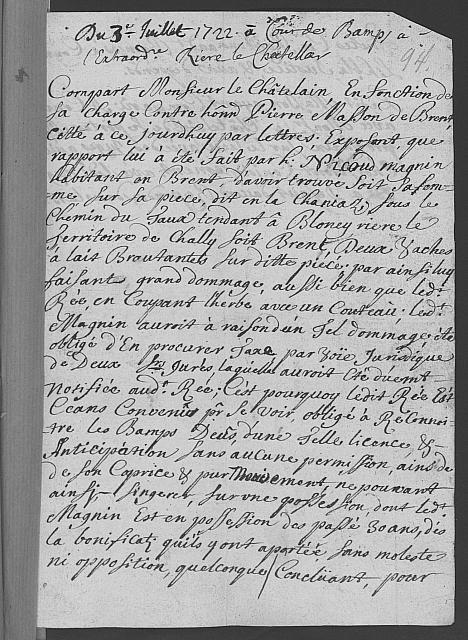 Du 3.e Juillet 1722. à Cour de Bamps à
l'Extraordre. Riere le Châtellar
94
Compart Monsieur le Châtelain, En fonction de
sa Charge Contre honn Pierre Masson de Brent,
citté à ce Jourdhuy par lettres; Exposant, que
rapport lui à été fait par h. Nicoud magnin
habitant en Brent, d'avoir trouvé soit sa fem-
me, sur sa pièce, dit en la Chaniaz, sous le
Chemin du Faux tendant â Bloney riere le
Territoire de Chally soit Brent, Deux vaches
â lait Broutantes sur ditte pièce; par ainsi luy
faisant, grand dommage, aussi bien que led.t
Rée, en Coupant lherbe avec un Couteau; led.t
Magnin auroit à raison d'un Tel dommage, été
obligé d'En procurer Taxe par voïe Juridique
de Deux Jurés laquelle auroit été duemt
Notifiée aud.t Rée; C'est pourquoy ledit Rée Est
Ceans Convenus pr se voir obligé à Reconnoi-
tre les Bamps Deus, d'une Telle licence &
Anticipation sans aucune permission, ains de
de son Caprice & pur Mouvement, ne pouvant
ainsi singerer, sur une possession, dont led.t
Magnin Est en possession des passé 30 ans, dès
la bonificat. qu'ils y ont aportée, sans moleste
ni opposition, quelconque / Concluant, pour